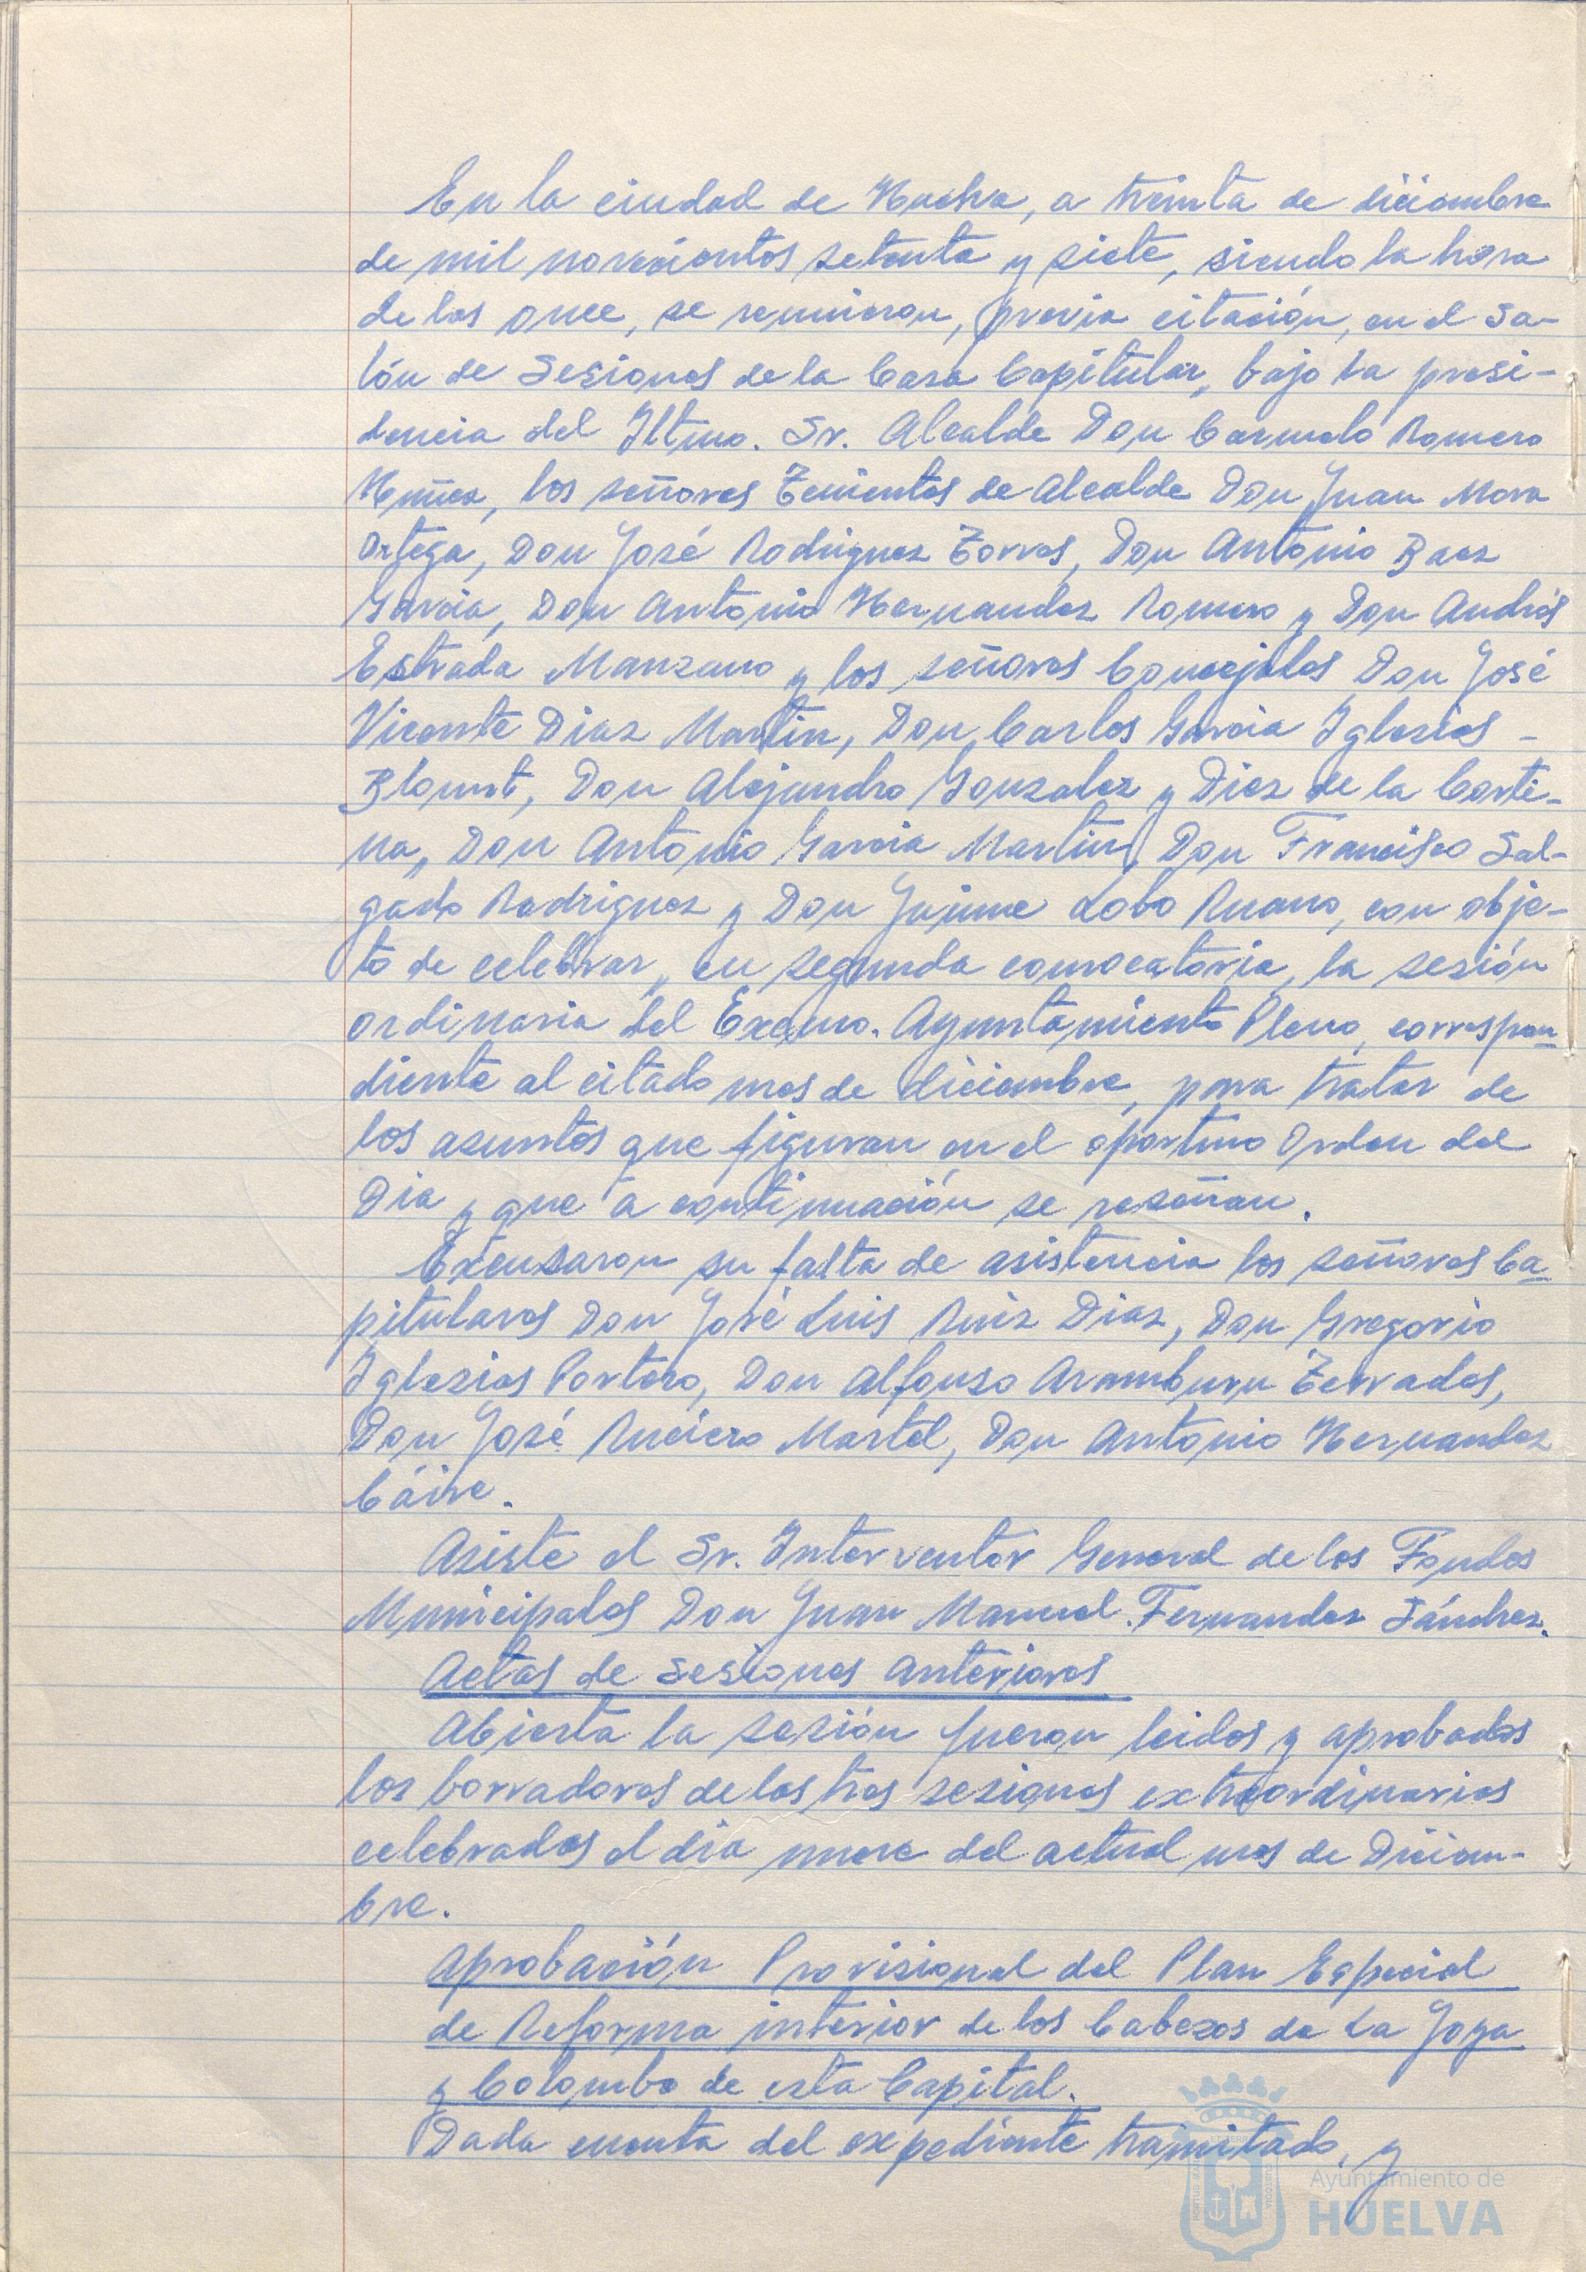 En la ciudad de Huelva, a treinta de diciembre
de mil novecientos setenta y siete, siendo la hora
de las once, se reunieron, previa citación, en el Sa-
lón de Sesiones de la Casa Capitular, bajo la presi-
dencia del Iltmo. Sr. Alcalde Don Carmelo Romero
Nuñez, los señores Tenientes de Alcalde Don Juan Mora
Ortega, Don José Rodriguez Torres, Don Antonio Baez
Garcia, Don Antonio Hernandez Romero y Don Andrés
Estrada Manzano y los señores Concejales Don José
Vicente Diaz Martin, Don Carlos Garcia Iglesias -
Blount, Don Alejandro Gonzalez y Diez de la Corti-
na, Don Antonio Garcia Martin, Don Francisco Sal-
gado Rodriguez y Don Jaime Lobo Ruano, con obje-
to de celebrar, en segunda convocatoria, la sesión
ordinaria del Excmo. Ayuntamiento Pleno, correspon-
diente al citado mes de diciembre, para tratar de
los asuntos que figuran en el oportuno Orden del
Dia y que a continuación se reseñan.
Excusaron su falta de asistencia los señores Ca-
pitulares Don José Luis Ruiz Diaz, Don Gregorio
Iglesias Portero, Don Alfonso Aramburu Terrades,
Don José Ruciero Martel, Don Antonio Hernandez
Cáive.
Asiste el Sr. Interventor General de los Fondos
Municipales Don Juan Manuel Fernandez Sánchez.
Actas de Sesiones Anteriores
Abierta la sesión fueron leidos y aprobados
los borradores de las tres sesiones extraordinarias
celebradas el dia nueve del actual mes de Diciem-
bre.
Aprobación Provisional del Plan Especial
de Reforma interior de los Cabezos de La Joya
y Colombo de esta Capital.
Dada cuenta del expediente tramitado, y
Ayuntamiento de
HUELVA